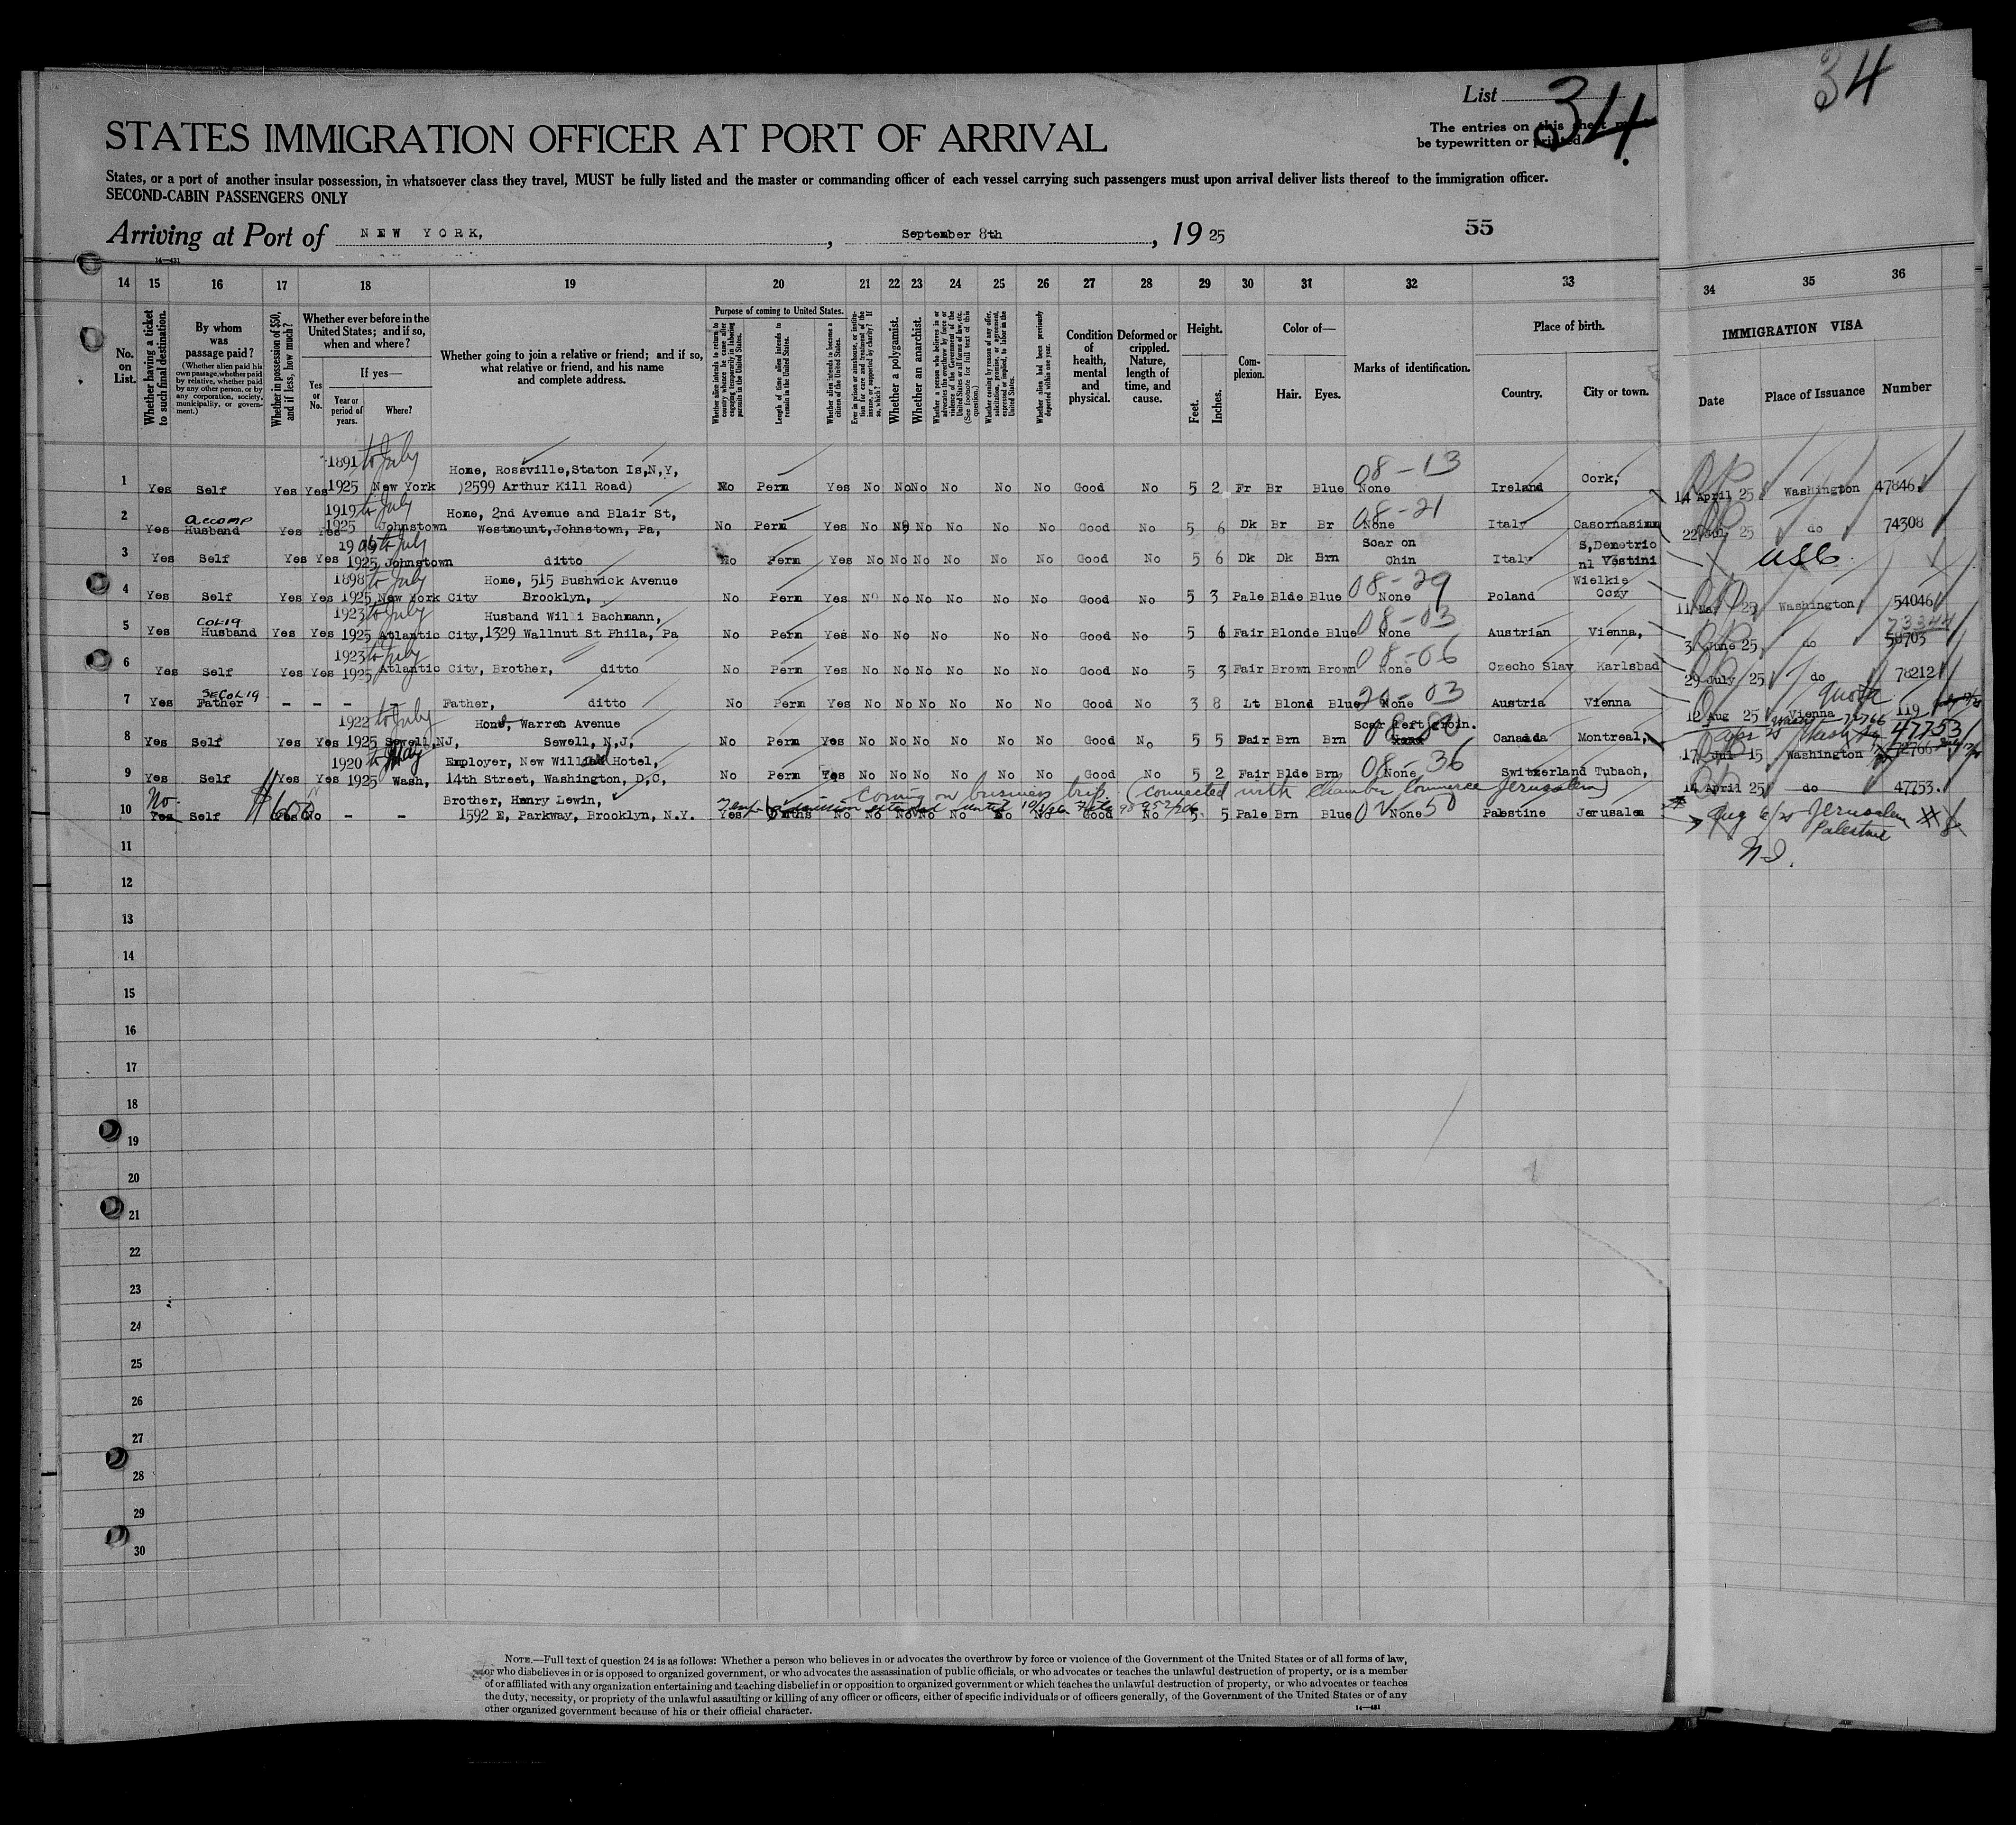 34
List 34.
STATES IMMIGRATION OFFICER AT PORT OF ARRIVAL
The entries on this sheet must
be typewritten or printed.
States, or a port of another insular possession, in whatsoever class they travel, MUST be fully listed and the master or commanding officer of each vessel carrying such passengers must upon arrival deliver lists thereof to the immigration officer.
SECOND-CABIN PASSENGERS ONLY
Arriving at Port of NEW YORK, , September 8th , 19 25
55
14—431
14 15 16 17 18 19 20 21 22 23 24 25 26 27 28 29 30 31 32 33 34 35 36
No. on List.
Whether having a ticket to such final destination.
By whom was passage paid?
(Whether alien paid his own passage, whether paid by relative, whether paid by any other person, or by any corporation, society, municipality, or government.)
Whether in possession of $50, and if less, how much?
Whether ever before in the United States; and if so, when and where?
Yes or No.
If yes—
Year or period of years.
Where?
Whether going to join a relative or friend; and if so, what relative or friend, and his name and complete address.
Purpose of coming to United States.
Whether alien intends to return to country whence he came after engaging temporarily in laboring pursuits in the United States.
Length of time alien intends to remain in the United States.
Whether alien intends to become a citizen of the United States.
Ever in prison or almshouse, or institution for care and treatment of the insane or supported by charity? If so, which?
Whether a polygamist.
Whether an anarchist.
Whether a person who believes in or advocates the overthrow by force or violence of the Government of the United States or all forms of law, etc. (See footnote for full text of this question.)
Whether coming by reason of any offer, solicitation, promise, or agreement, expressed or implied, to labor in the United States.
Whether alien had been previously deported within one year.
Condition of health, mental and physical.
Deformed or crippled. Nature, length of time, and cause.
Height.
Feet. Inches.
Complexion.
Color of—
Hair. Eyes.
Marks of identification.
Place of birth.
Country. City or town.
IMMIGRATION VISA
Date Place of Issuance Number
1 Yes Self Yes Yes 1891 to July 1925 New York Home, Rossville, Staton Is, N,Y, )2599 Arthur Kill Road) No Perm Yes No No No No No No Good No 5 2 Fr Br Blue 08-13 None Ireland Cork, 14 April 25 Washington 47846
2 Yes accomp Husband Yes Yes 1919 to July 1925 Johnstown Home, 2nd Avenue and Blair St, Westmount, Johnstown, Pa, No Perm Yes No No No No No No Good No 5 6 Dk Br Br 08-21 None Italy 22 25 do 74308
3 Yes Self Yes Yes 1906 to July 1925 Johnstown ditto No Perm Yes No No No No No No Good No 5 6 Dk Dk Brn Scar on Chin Italy S,Demetrio nl Vestini USC
4 Yes Self Yes Yes 1898 to July 1925 New York City Home, 515 Bushwick Avenue Brooklyn, No Perm Yes No No No No No No Good No 5 3 Pale Blde Blue 08-29 None Poland Wielkie Oczy 11 May 25 Washington 54046
5 Yes Husband Yes Yes 1923 to July 1925 Atlantic City, Husband Willi Bachmann, 1329 Wallnut St Phila, Pa No Perm Yes No No No No No Good No 5 6 Fair Blonde Blue 08-03 None Austrian Vienna, 3 June 25 do 73344 58703
6 Yes Self Yes Yes 1923 to July 1925 Atlantic City, Brother, ditto No Perm Yes No No No No No No Good No 5 3 Fair Brown Brown 08-06 None Czecho Slav Karlsbad 29 July 25 do 78212
7 Yes Father - - - - Father, ditto No Perm Yes No No No No No No Good No 3 8 Lt Blond Blue 20-03 None Austria Vienna 12 Aug 25 Vienna quota 119
8 Yes Self Yes Yes 1922 to July 1925 Sewell, NJ, Home, Warren Avenue Sewell, N,J, No Perm Yes No No No No No No Good No 5 5 Fair Brn Brn Scar left groin. Canada Montreal, 17 Jul 15 Washington 72766 47753
9 Yes Self Yes Yes 1920 to July 1925 Wash, Employer, New Willard Hotel, 14th Street, Washington, D,C, No Perm Yes No No No No No No Good No 5 2 Fair Blde Brn 08-36 None Switzerland Tubach, 14 April 25 do 47753.
Coming on business trip (connected with Chamber Commerce Jerusalem)
10 No Yes Self $600 Yes No - - Brother, Henry Lewin, 1592 E, Parkway, Brooklyn, N.Y. Yes 6 mths No No No No No No No Good No 5 5 Pale Brn Blue None Palestine Jerusalem Aug 6/25 Jerusalem Palestine
11
12
13
14
15
16
17
18
19
20
21
22
23
24
25
26
27
28
29
30
NOTE.—Full text of question 24 is as follows: Whether a person who believes in or advocates the overthrow by force or violence of the Government of the United States or of all forms of law,
or who disbelieves in or is opposed to organized government, or who advocates the assassination of public officials, or who advocates or teaches the unlawful destruction of property, or is a member
of or affiliated with any organization entertaining and teaching disbelief in or opposition to organized government or which teaches the unlawful destruction of property, or who advocates or teaches
the duty, necessity, or propriety of the unlawful assaulting or killing of any officer or officers, either of specific individuals or of officers generally, of the Government of the United States or of any
other organized government because of his or their official character.
14—431